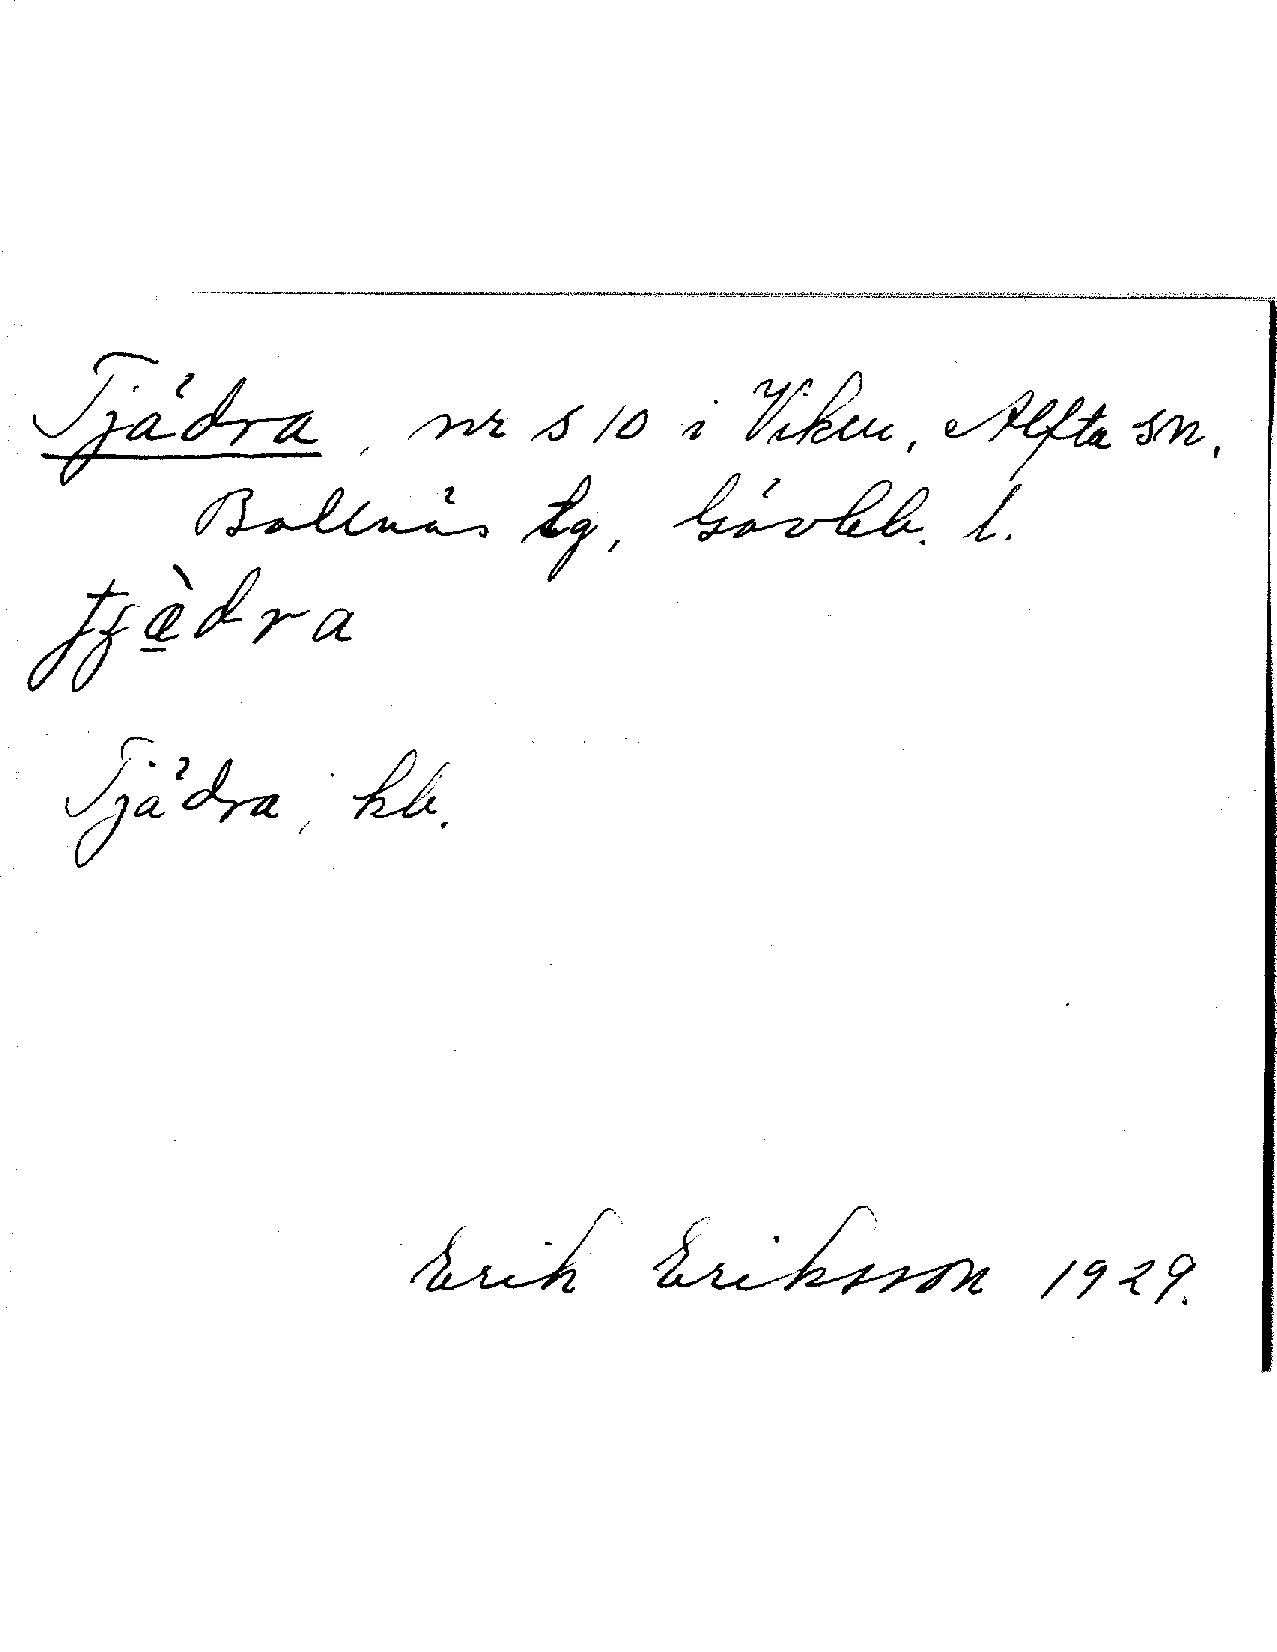 Tjädra, nr s 10 i Viken, Alfta sn,
Bollnäs tg, Gävleb. l.
tjæ̀dra
Tjädra, kb.
Erik Eriksson 1929.